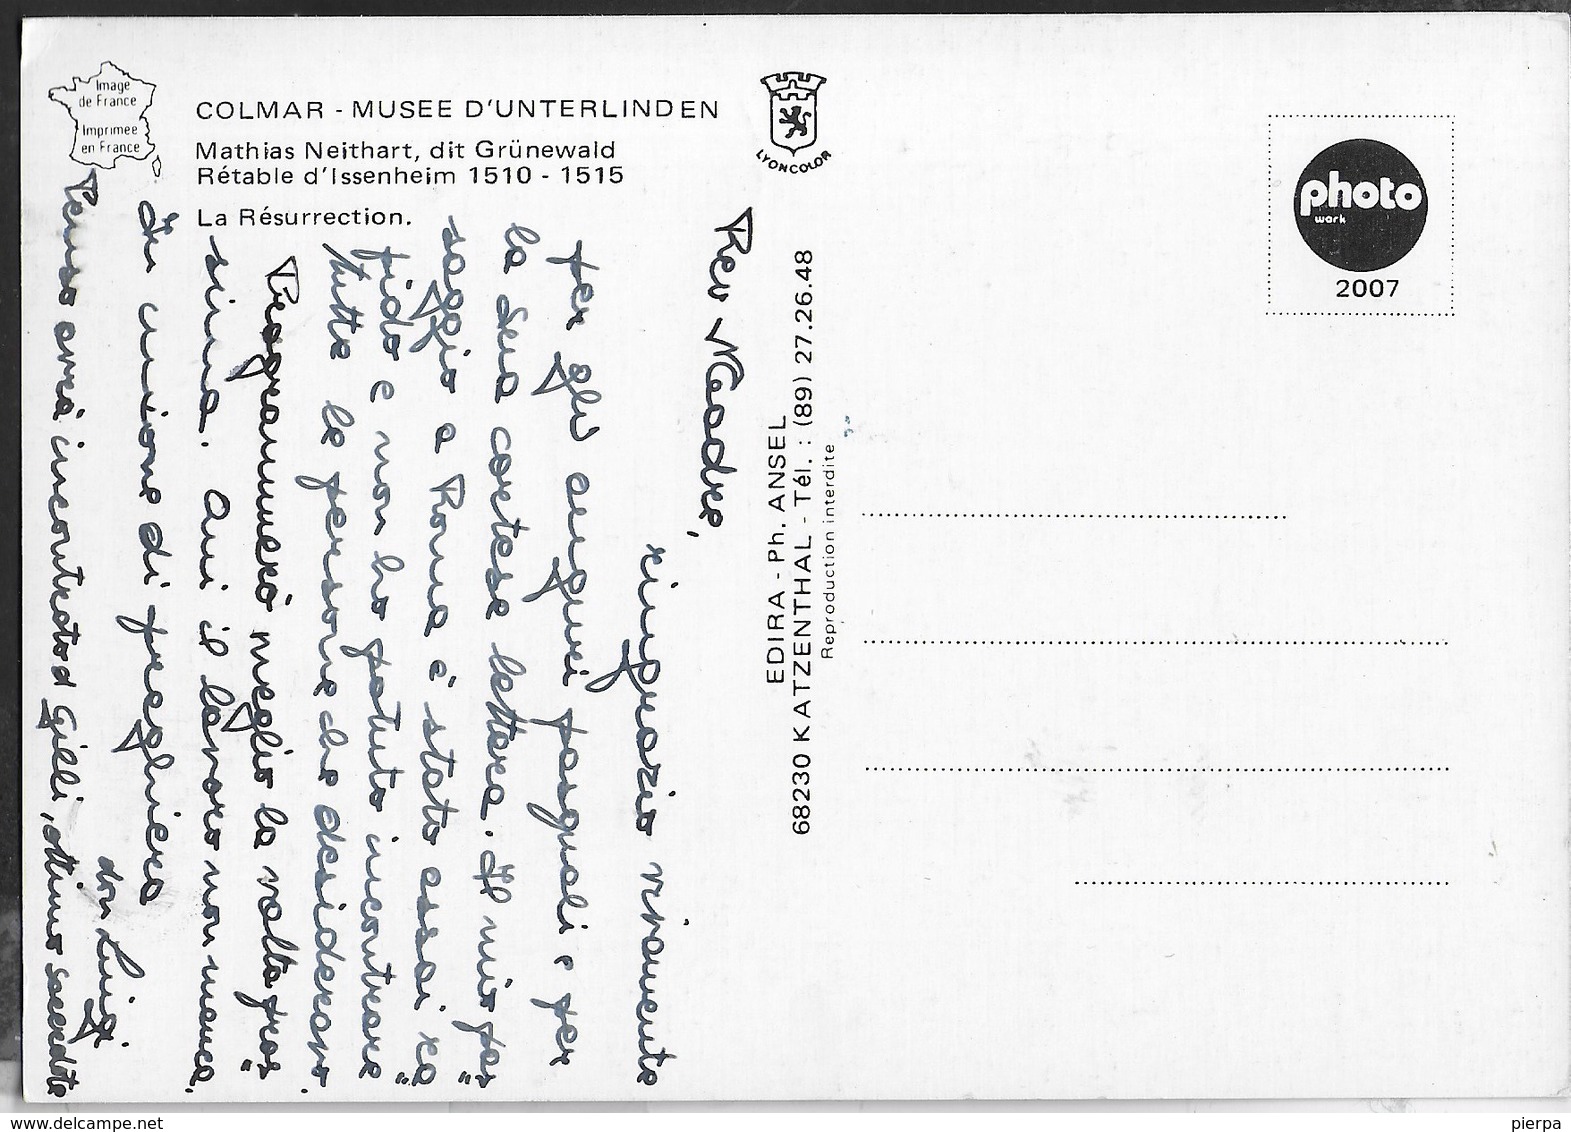 Image
de France
Imprimée
en France
COLMAR - MUSEE D'UNTERLINDEN
Mathias Neithart, dit Grünewald
Rétable d'Issenheim 1510 - 1515
La Résurrection.
LYONCOLOR
photo
work
2007
EDIRA - Ph. ANSEL
68230 KATZENTHAL - Tél. : (89) 27.26.48
Reproduction interdite
Rev Madre,
ringrazio vivamente
per gli auguri pasquali e per
la Sua cortese lettera. Il mio pas"
saggio a Roma è stato assai ra"
pido e non ho potuto incontrare
tutte le persone che desideravo.
Programmerò meglio la volta pros"
sima. Qui il lavoro non manca.
In unione di preghiera
don Luigi
Penso avrà incontrato d Gilli, ottimo sacerdote
www.delcampe.net
pierpa